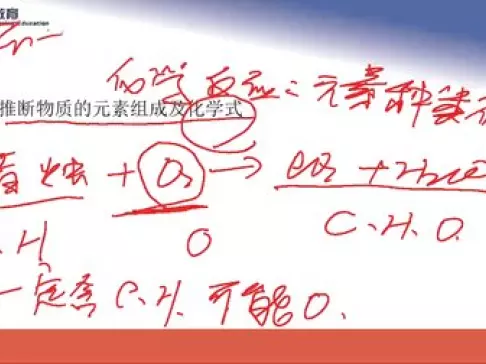 教育
Education
化学反应：元素种类
推断物质的元素组成及化学式
蜡烛 + O₂ → CO₂ + H₂O
. H O C.H.O.
一定含 C.H. 可能O.